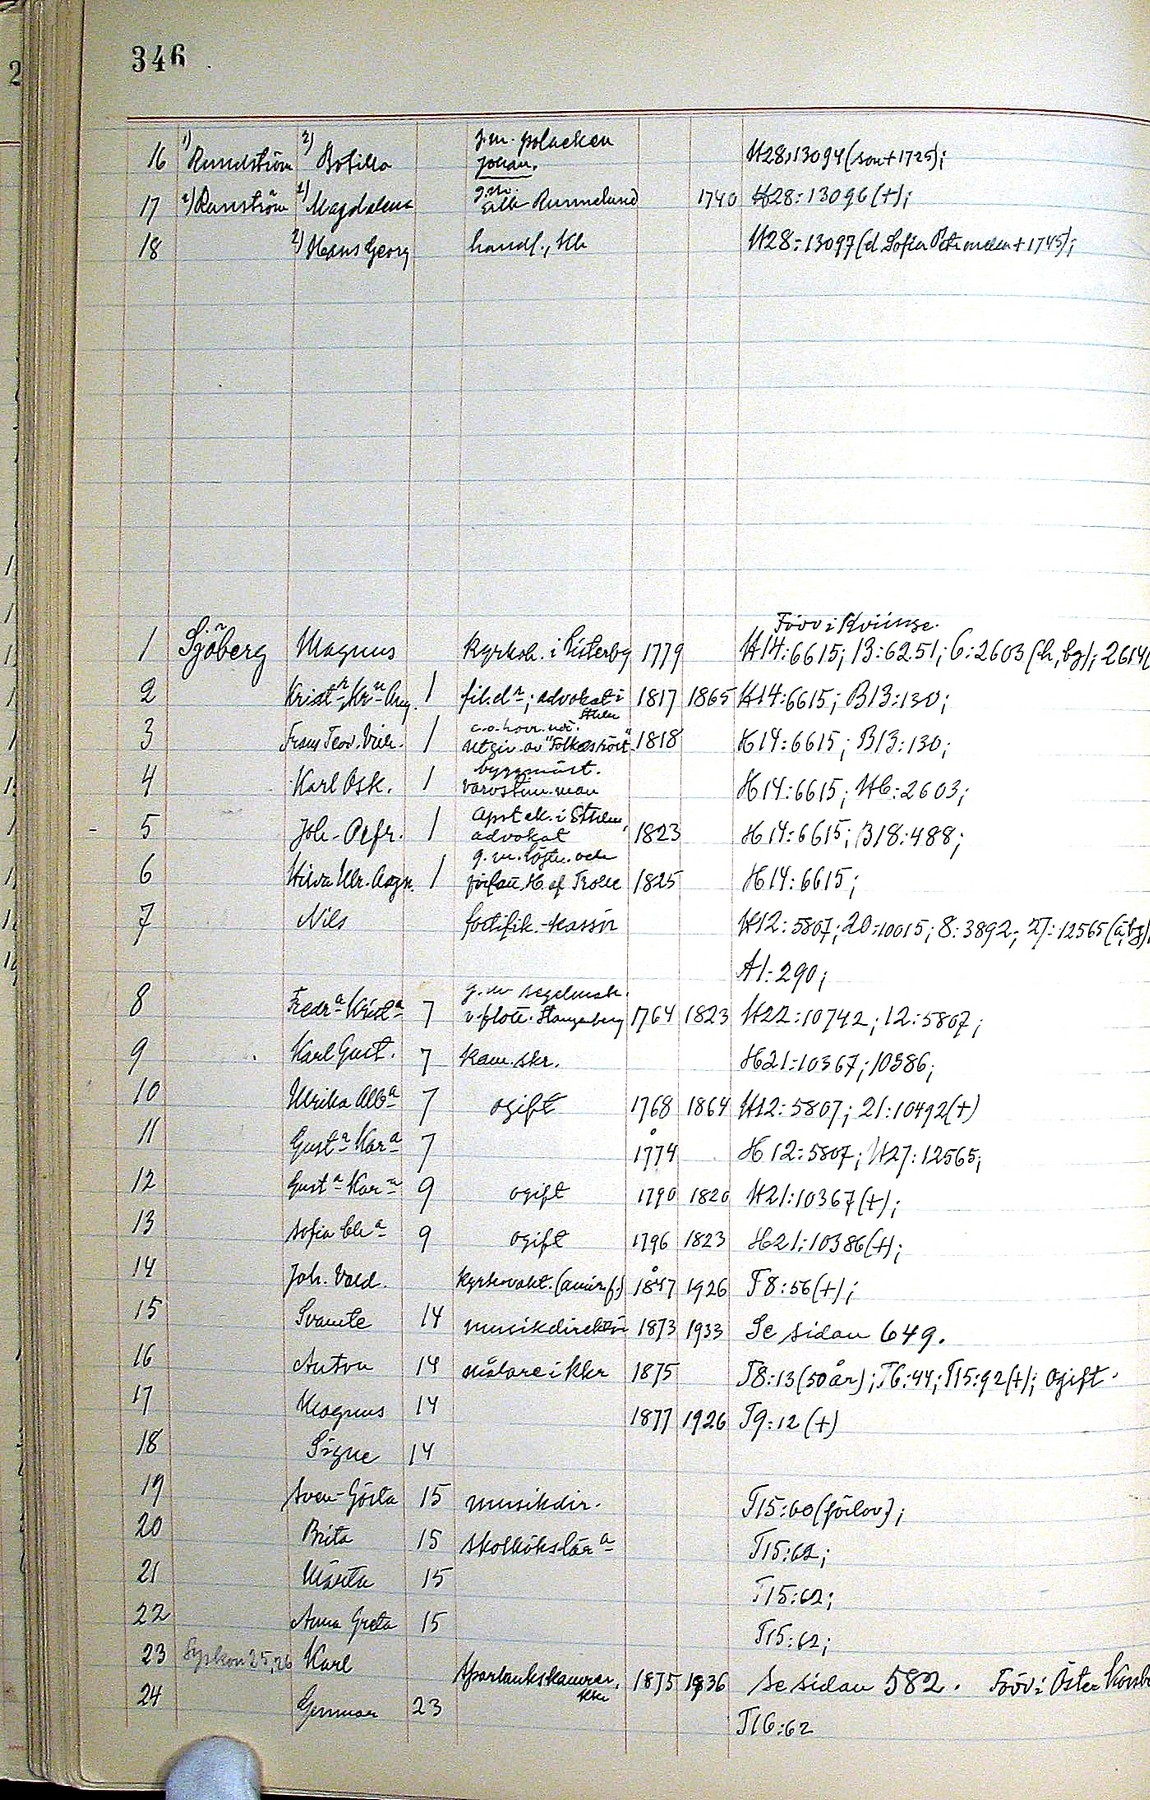 346
16 1) Rundström 2) Botilla g.m. polacken Johan. H28:13094(son+1725);
17 2) Runström 1) Magdalena g.m. Erik Runnelund 1740 H28:13096(+);
18 2) Hans Georg handl., Kkr H28:13097(d. Sofia Petronella+1745);
Född i Kviinge.
1 Sjöberg Magnus kyrkoh. i Listerby 1779 H14:6615; 13:6251; 6:2603(h,bg); 2614(
2 fil.dr; advokat i Sthlm 1817 1865 H14:6615; B13:130;
3 Frans Teod. Vilh. 1 utgiv. av "Folkets röst" 1818 H14:6615; B13:130;
4 Karl Osk. 1 byggmäst. H14:6615; H6:2603;
5 Joh. Alfr. 1 apotek. i Sthlm, advokat 1823 H14:6615; B18:488;
6 Hilda Ulr. Aug. 1 g.m. löjtn. och H. af Trolle 1825 H14:6615;
7 Nils fortifik.-kassör H12:5807; 20:10015; 8:3892; 27:12565(ä,bg),
A1:290;
8 Fredra Krista 7 g.m. segelmak. v. flott. Stangeberg 1764 1823 H22:10742; 12:5807;
9 Karl Gust. 7 kam.skr. H21:10367; 10386;
10 Ulrika Alba 7 ogift 1768 1864 H12:5807; 21:10492(+)
11 Gusta Kara 7 1774 H12:5807; H27:12565;
12 Gusta Kara 9 ogift 1790 1820 H21:10367(+);
13 Sofia Ela 9 ogift 1796 1823 H21:10386(+);
14 Joh. Vald. kyrkovakt. (amir.f.) 1847 1926 T8:56(+);
15 Svante 14 musikdirektör 1873 1933 Se sidan 649.
16 Anton 14 målare i Kkr 1875 T8:13(50 år); T6:44; T15:92(+); Ogift.
17 Magnus 14 1877 1926 T9:12(+)
18 Signe 14
19 Sven-Gösta 15 musikdir. T15:60(förlov);
20 Brita 15 skolkökslära T15:62;
21 Märta 15 T15:62;
22 Anna Greta 15 T15:62;
23 Syskon 25,26 Karl Sparbankskamrer, Kkr 1875 1936 Se sidan 582. Född i Öster
24 Gunnar 23 T16:62